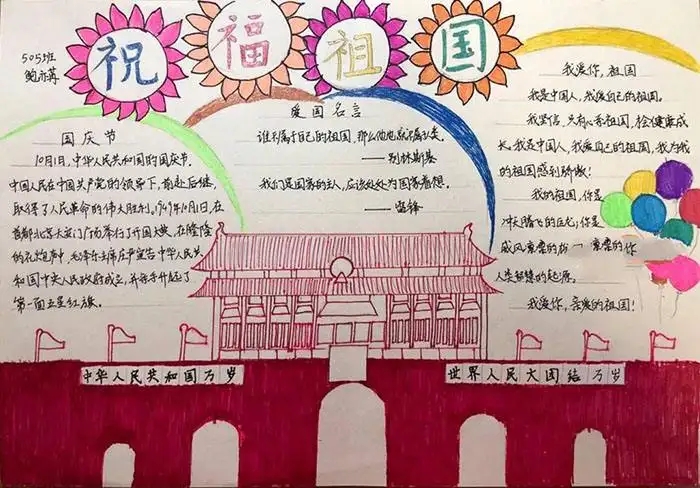 祝福祖国
505班
鲍亦苒
国庆节
10月1日,中华人民共和国的国庆节。
中国人民在中国共产党的领导下,前赴后继,
取得了人民革命的伟大胜利。1949年10月1日,在
首都北京天安门广场举行了开国大典,在隆隆
的礼炮声中,毛泽东主席庄严宣告中华人民共
和国中央人民政府成立,并亲手升起了
第一面五星红旗。
爱国名言
谁不属于自己的祖国,那么他也就不属于人类。
——别林斯基
我们是国家的主人,应该处处为国家着想。
——雷锋
我爱你,祖国
我是中国人,我爱自己的祖国。
我坚信,只有心系祖国,才会健康成
长。我是中国人,我爱自己的祖国,我为我
的祖国感到骄傲!
我的祖国,你是
冲天腾飞的巨龙;你是
威风凛凛的
的你
人类智慧的起源。
我爱你,亲爱的祖国!
中华人民共和国万岁
世界人民大团结万岁